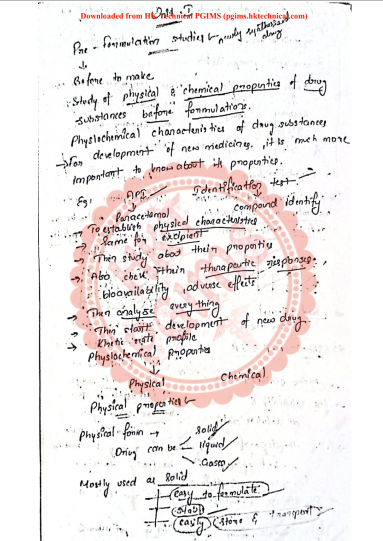 Downloaded from HK Technical PGIMS (pgims.hktechnical.com)
Unit - I
Pre - formulation studies newly synthesised drug
Before to make
Study of physical & chemical properties of drug
substances before formulations.
Physiochemical characteristics of drug substances
→ For development of new medicines, it is much more
important to know about its properties.
Eg. API Identification test
Paracetamol compound identify
→ To establish physical characteristics
→ Same for excipient
→ Then study about their properties
→ Also check their therapeutic responses
bioavailability, adverse effects
→ Then analyse everything
→ Then start development of new drug
→ Kinetic rate profile
→ Physiochemical properties
Physical Chemical
Physical properties
Physical form → Solid
Drug can be liquid
Gases
Mostly used as solid
easy to formulate
stable
easily store & transport